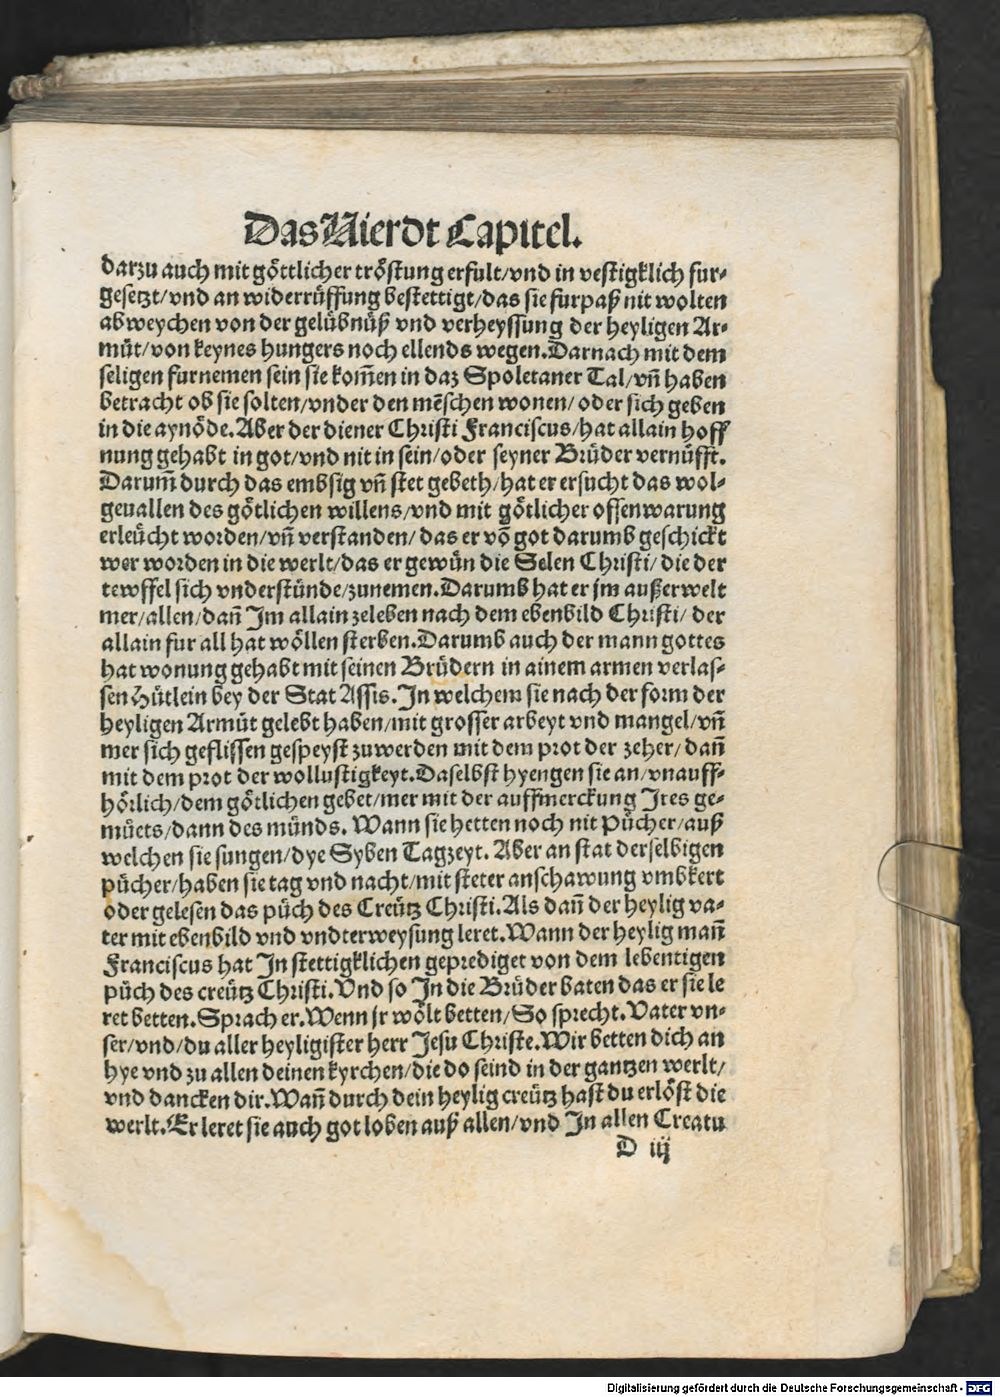 Das Vierdt Capitel.
darzu auch mit göttlicher tröstung erfult/vnd in vestigklich fur-
gesetzt/vnd an widerrüffung bestettigt/das sie furpaß nit wolten
abweychen von der gelübnüß vnd verheyssung der heyligen Ar-
müt/von keynes hungers noch ellends wegen.Darnach mit dem
seligen furnemen sein sie kom̄en in daz Spoletaner Tal/vn̄ haben
betracht ob sie solten/vnder den mēschen wonen/oder sich geben
in die aynöde.Aber der diener Christi Franciscus/hat allain hoff
nung gehabt in got/vnd nit in sein/oder seyner Brüder vernüfft.
Darum̄ durch das embsig vn̄ stet gebeth/hat er ersucht das wol-
geuallen des götlichen willens/vnd mit götlicher offenwarung
erleücht worden/vn̄ verstanden/das er vō got darumb geschickt
wer worden in die werlt/das er gewün die Selen Christi/die der
tewffel sich vnderstünde/zunemen.Darumb hat er jm außerwelt
mer/allen/dan̄ Jm allain zeleben nach dem ebenbild Christi/der
allain fur all hat wöllen sterben.Darumb auch der mann gottes
hat wonung gehabt mit seinen Brüdern in ainem armen verlas-
sen Hütlein bey der Stat Assis.Jn welchem sie nach der form der
heyligen Armüt gelebt haben/mit grosser arbeyt vnd mangel/vn̄
mer sich geflissen gespeyst zuwerden mit dem prot der zeher/dan̄
mit dem prot der wollustigkeyt.Daselbst hyengen sie an/vnauff-
hörlich/dem götlichen gebet/mer mit der auffmerckung Jres ge-
müets/dann des münds. Wann sie hetten noch nit Pücher/auß
welchen sie sungen/dye Syben Tagzeyt. Aber an stat derselbigen
pücher/haben sie tag vnd nacht/mit steter anschawung vmbkert
oder gelesen das püch des Creütz Christi.Als dan̄ der heylig va-
ter mit ebenbild vnd vndterweysung leret.Wann der heylig man̄
Franciscus hat Jn stettigklichen geprediget von dem lebentigen
püch des creütz Christi.Vnd so Jn die Brüder baten das er sie le
ret betten.Sprach er.Wenn jr wölt betten/So sprecht.Vater vn-
ser/vnd/du aller heyligister herr Jesu Christe.Wir betten dich an
hye vnd zu allen deinen kyrchen/die do seind in der gantzen werlt/
vnd dancken dir.Wan̄ durch dein heylig creütz hast du erlöst die
werlt.Er leret sie auch got loben auß allen/vnd Jn allen Creatu
D iij
Digitalisierung gefördert durch die Deutsche Forschungsgemeinschaft - DFG